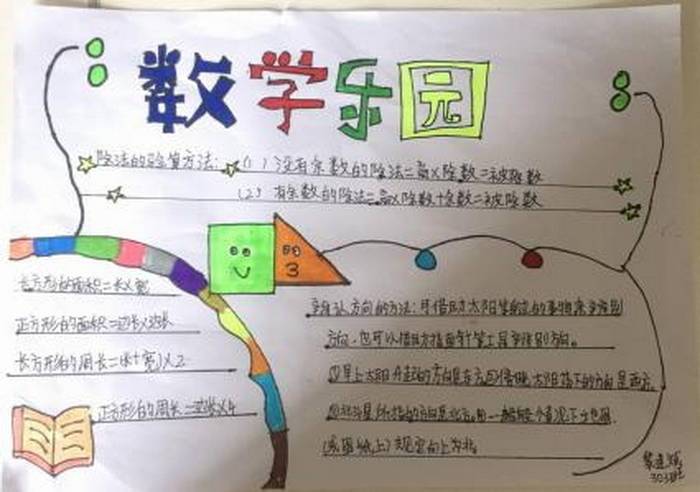 数学乐园
除法的验算方法:(1)没有余数的除法=商×除数=被除数
(2)有余数的除法=商×除数+余数=被除数
3
长方形的面积=长×宽
正方形的面积=边长×边长
长方形的周长=(长+宽)×2
正方形的周长=边长×4
辨认方向的方法:可借助太阳等的事物来辨别
方向,也可以借助指南针等工具辨别方向。
①早上太阳升起的方向是东方,太阳落下的方向是西方。
②北斗星所指的方向是北方。一般情况下
(地图纸上)规定向上为北。
303班